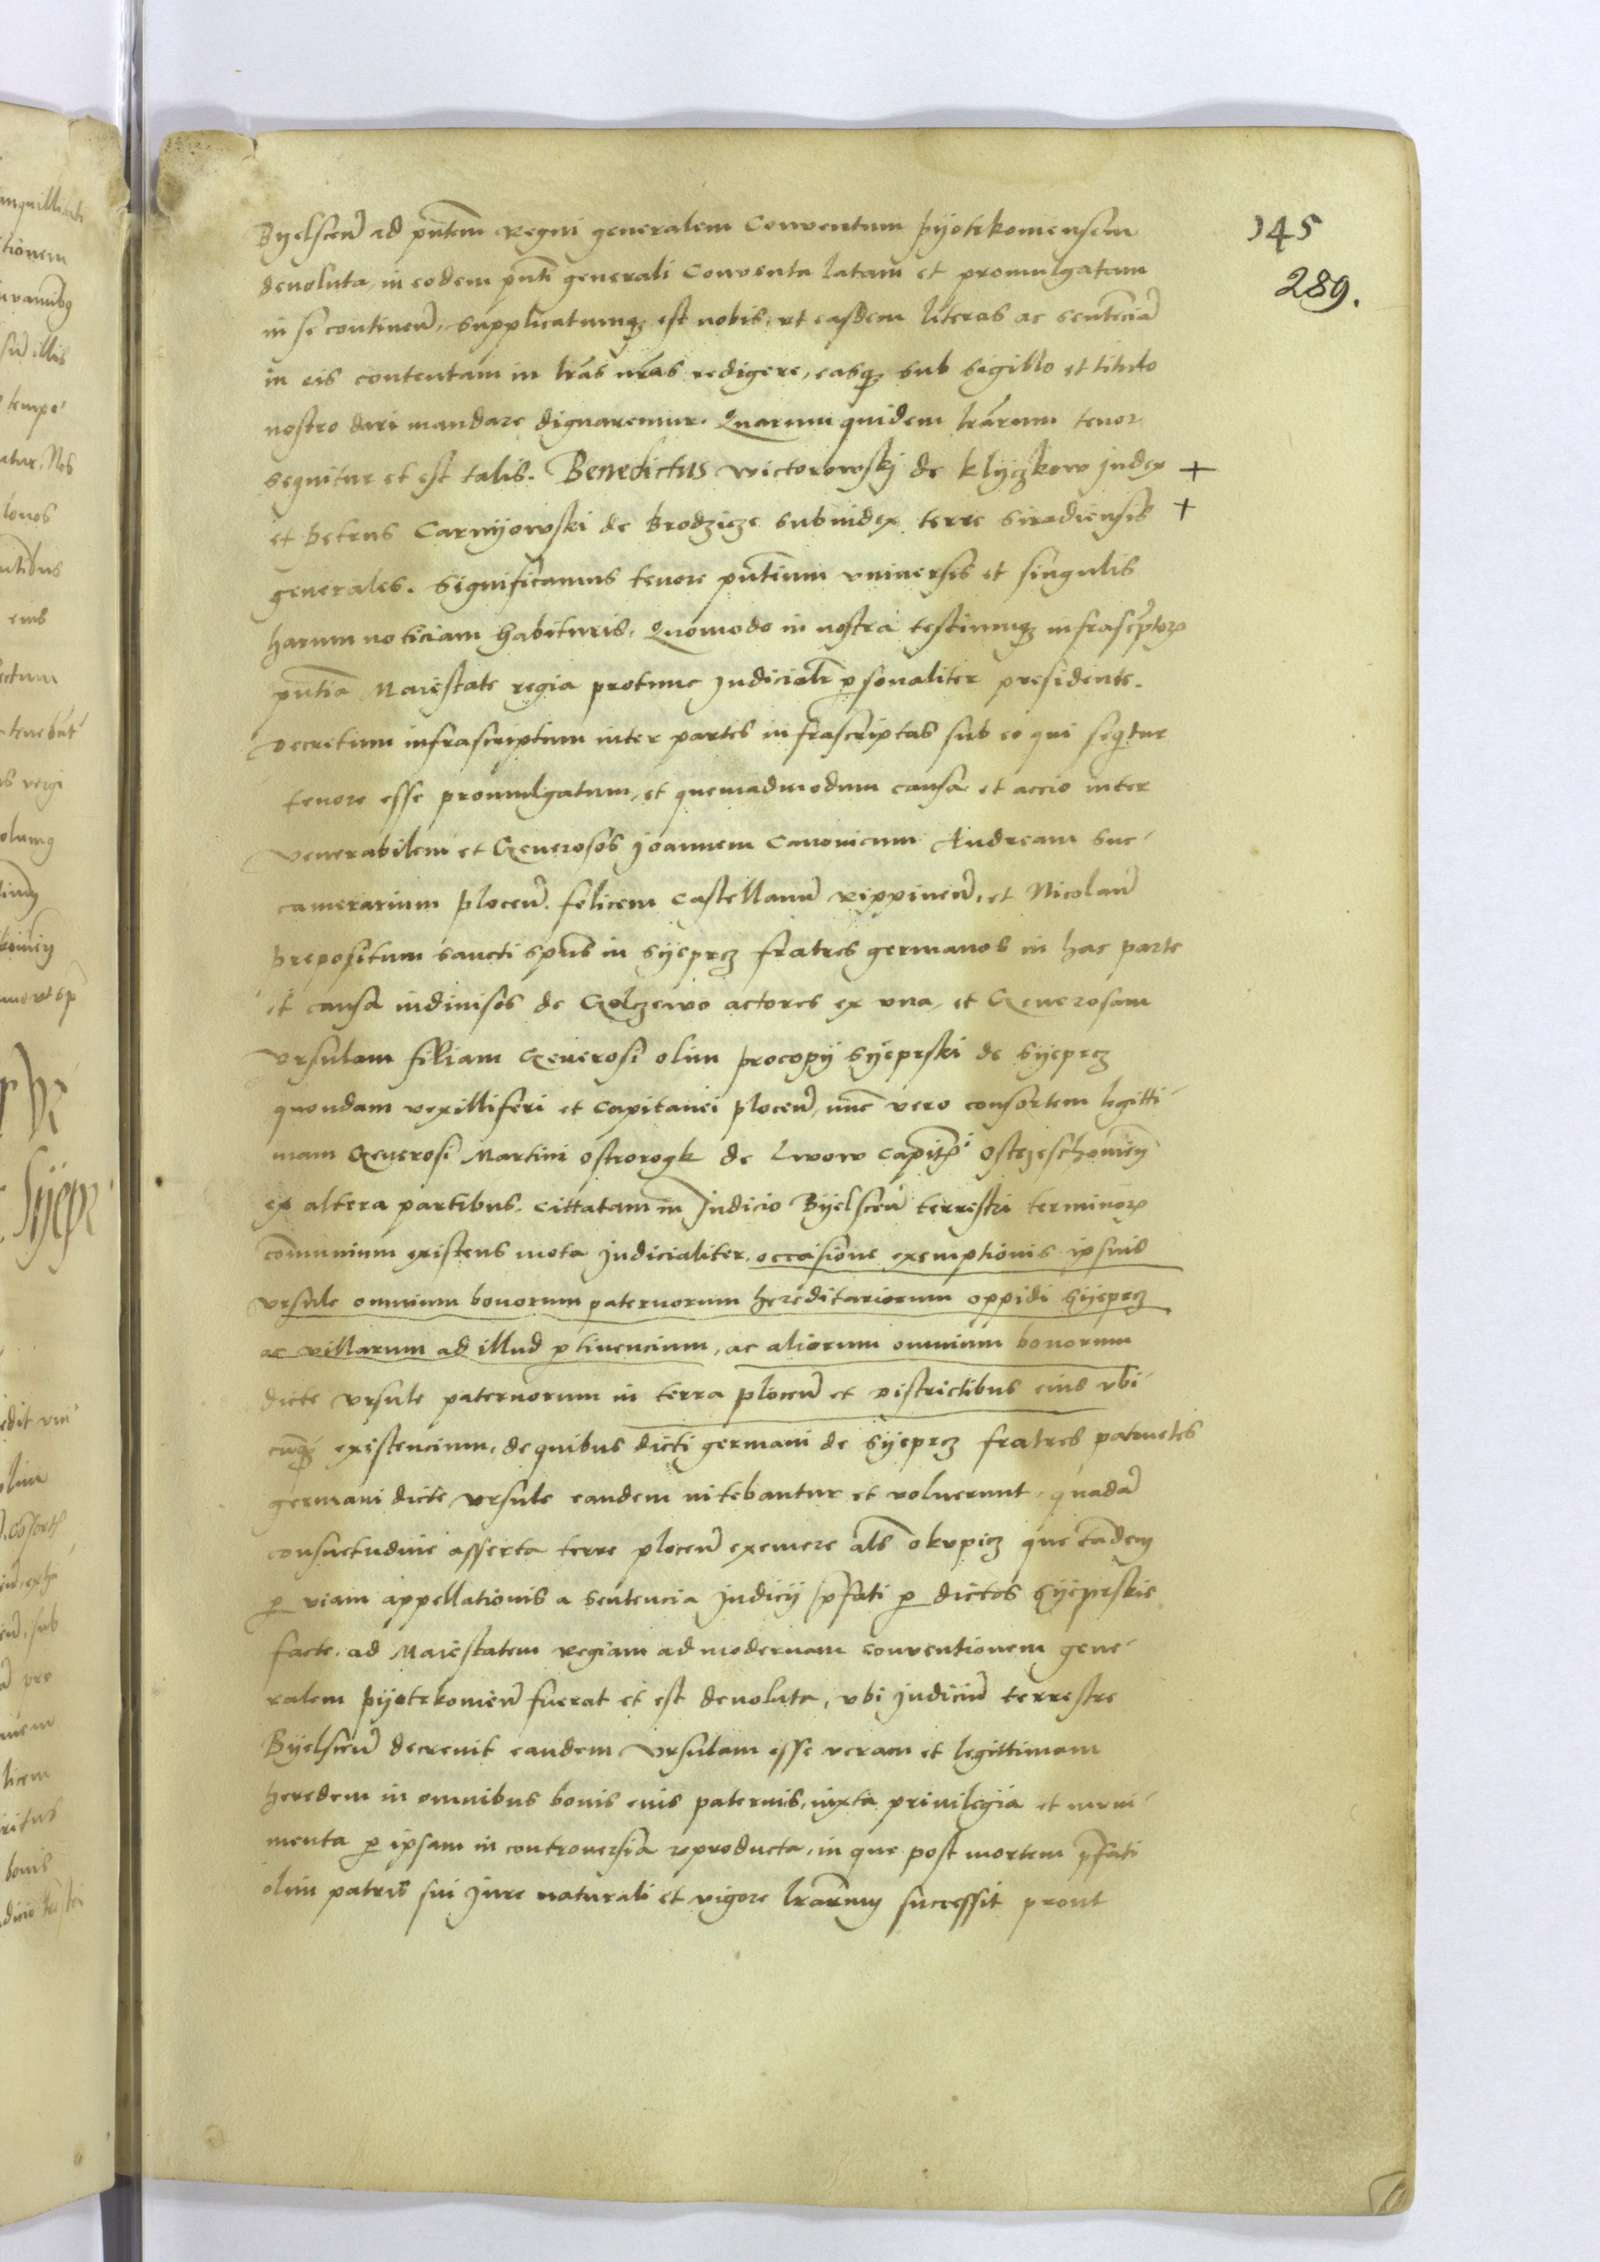 145
289.
Byelscen̄ ad pn̄tem Regni generalem Conventum pyotrkoviensem
devoluta, in eodem pn̄ti generali Conventu latam et promulgatam
in se continen̄, supplicatumq₃ est nobis, ut easdem literas ac sentenciā
in eis contentam in lr̄as nr̄as redigere, easq₃ sub sigillo et titulo
nostro dari mandare dignaremur. Quarum quidem lr̄arum tenor
sequitur et est talis. Benedictus wictorowskj de klyczkow judex +
et petrus Carnyowski de brodzicze subiudex terre siradiensis +
generales. Significamus tenore pn̄tium universis et singulis
harum noticiam habituris. Quomodo in nostra testiumq₃ infrascptoꝝ
pn̄tia Maiestate regia protunc judicialr̄ ꝑsonaliter presidente.
Decretum infrascriptum inter partes infrascriptas sub eo qui seqitur
tenore esse promulgatum, et quemadmodum causa et accio inter
venerabilem et Generosos joannem Canonicum Andream suc-
camerarium plocen̄. felicem Castellanū Rippinen̄, et Nicolaū
prepositum sancti spūs in syeprcz fratres germanos in hac parte
et causa indivisos de Golczewo actores ex una, et Generosam
Ursulam filiam Generosi olim procopy syeprski de syeprcz
quondam vexilliferi et Capitanei plocen̄, nūc vero consortem legitti-
mam Generosi Martini ostrorogk de Lwow Capitꝭ ostrzeschoviēn̄
ex altera partibus. Cittatam in judicio Byelscen̄ terrestri terminoꝝ
cōmunium existens mota judicialiter. occasione exemptionis ipsius
Ursule omnium bonorum paternorum hereditariorum oppidi syeprcz
ac villarum ad illud ꝑtinencium, ac aliorum omnium bonorum
dicte Ursule paternorum in terra plocen̄ et districtibus eius ubi-
cūq₃ existencium, de quibus dicti germani de syeprcz fratres patrueles
germani dicte Ursule eandem nitebantur et voluerunt, quadā
consuetudine asserta terre plocen̄ exemere als̄ okupicz que tādem
ꝑ viam appellationis a sentencia judicij p̄fati ꝑ dictos syeprskie
facte. ad Maiestatem Regiam ad modernam conventionem gene-
ralem pyotrkovien̄ fuerat et est devoluta, ubi judiciū terrestre
Byelscen̄ decrevit eandem Ursulam esse veram et legittimam
heredem in omnibus bonis eius paternis, iuxta privilegia et muni-
menta ꝑ ipsam in controversia reproducta, in que post mortem p̄fati
olim patris sui jure naturali et vigore lr̄arum successit prout